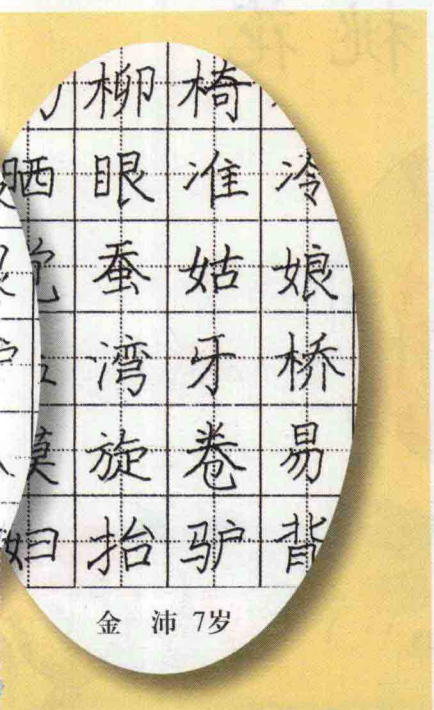 柳 椅
晒 眼 准 冷
蚕 姑 娘
湾 牙 桥
旋 卷 易
妇 抬 驴 背
金 沛 7岁